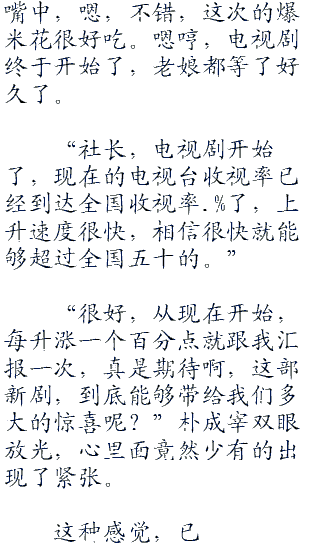 嘴中，嗯，不错，这次的爆
米花很好吃。嗯哼，电视剧
终于开始了，老娘都等了好
久了。
“社长，电视剧开始
了，现在的电视台收视率已
经到达全国收视率.%了，上
升速度很快，相信很快就能
够超过全国五十的。”
“很好，从现在开始，
每升涨一个百分点就跟我汇
报一次，真是期待啊，这部
新剧，到底能够带给我们多
大的惊喜呢？”朴成宰双眼
放光，心里面竟然少有的出
现了紧张。
这种感觉，已